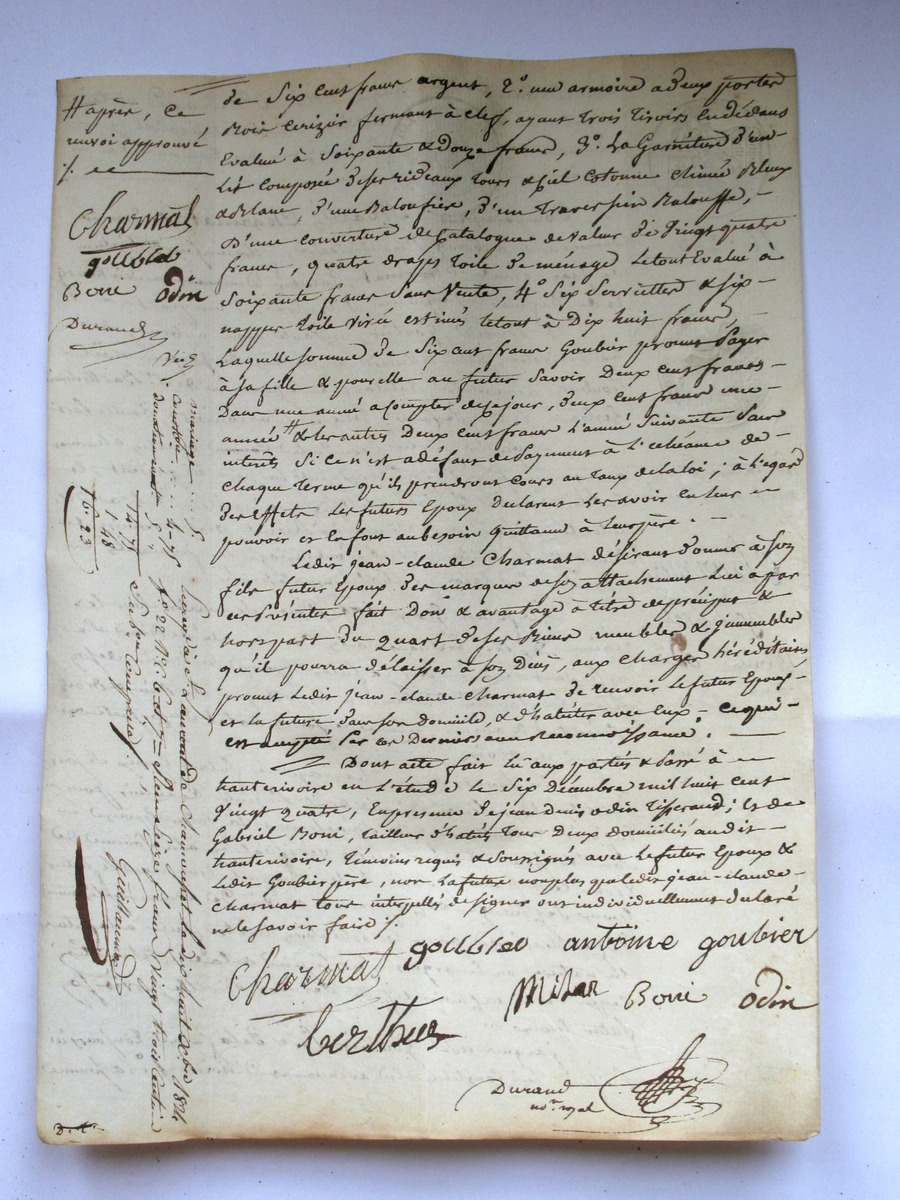 de Six Cent francs argent, 2.° une armoire a deux portes
Bois Cerizier fermant à clef, ayant Trois Tiroirs en dédans
Evalué à Soixante & Douze francs, 3.° La Garniture d'un
Lit composée de ses rideaux Tours & Ciel Cotonne Chinée Bleux
& Blanc, d'une Baloufière, d'un Traversin Balouffe, -
D'une Couverture de Catalogne de Valeur de Vingt quatre
francs, quatre draps Toile de ménage Le tout Evalué à
Soixante francs Sans Vente, 4.° Six Serviettes & Six -
nappes Toile Virée estimés le tout à Dix huit francs,
Laquelle Somme de Six cent francs Goubier promet Payer
à sa fille & pour elle au futur Savoir Deux Cent francs -
Dans une année a compter de ce jour, deux cent francs une -
année # & les autres Deux Cent francs L'année Suivante Sans
interêts Si ce n'est a défaut de Payment à l'echéance de -
chaque Terme qu'ils prendront Cours au Taux de la loi; à L'egard
des Effets Les futurs Epoux Declarent Les avoir en leur -
pouvoir et en font au besoin quittance à leur père. -
Ledit jean-claude Charmat désirant donner à son
fils futur Epoux des marques de son attachement Lui a par
ces Présentes fait Don & avantage à titre de préciput &
hors part du quart de ses Biens meubles & immeubles
qu'il pourra délaisser à son Décès, aux Charges héréditaires,
promet Ledit jean-claude Charmat de recevoir Le futur Epoux -
et la future dans son domicile, & d'habiter avec eux - Ce qui -
est accepté Par ces Derniers avec Reconnoissance. -
Dont acte fait lu aux parties & Passé à -
hauterivoire en L'étude le Six Décembre mil huit cent
Vingt quatre, En presence de jean denis odin Tisserand; Et de
Gabriel Boni, Tailleur d'habits Tous Deux domiciliés audit -
hauterivoire, Témoins requis & Soussignés avec Le futur Epoux &
Ledit Goubier père, non La future non plus que Ledit jean-claude -
Charmat tous interpellés de signer ont individuellement déclaré
ne le Savoir faire /.
Charmat goubier antoine goubier
Boni odin
Berthier
Durand
no.re royal
# après, Ce
renvoi approuvé
/.
Charmat
goubier
Boni odin
Durand
mariage . . . 5.
Constitu . . . 4-75
donation
14.75
1.48
16.23
Enregistré à St Laurent de Chamousset le dix huit Xbre 1824
fo. 22
Reçu Seize francs Vingt trois Centimes
Guillaumet